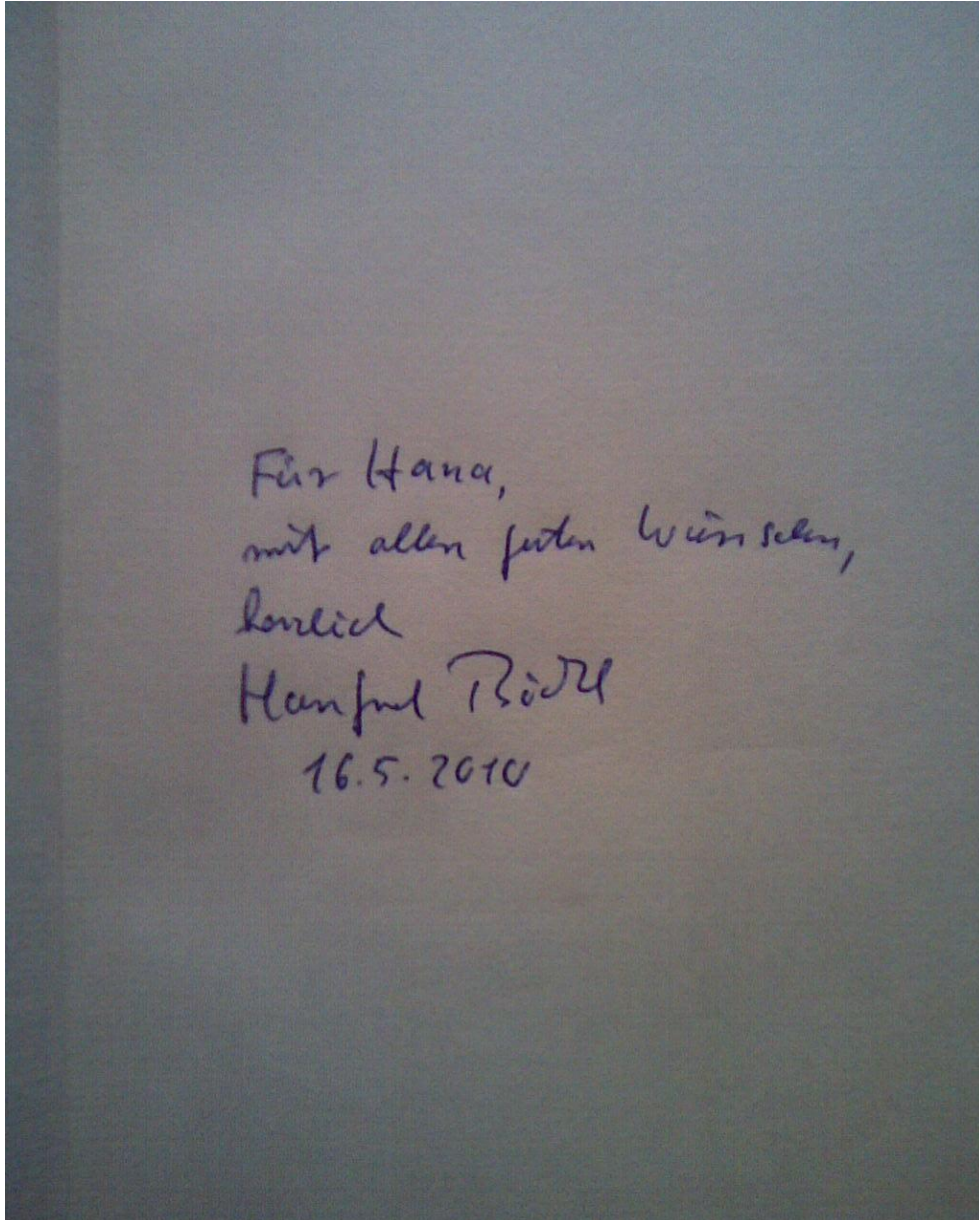 Für Hana,
mit allen guten Wünschen,
herzlich
Manfred Böckl
16.5.2010